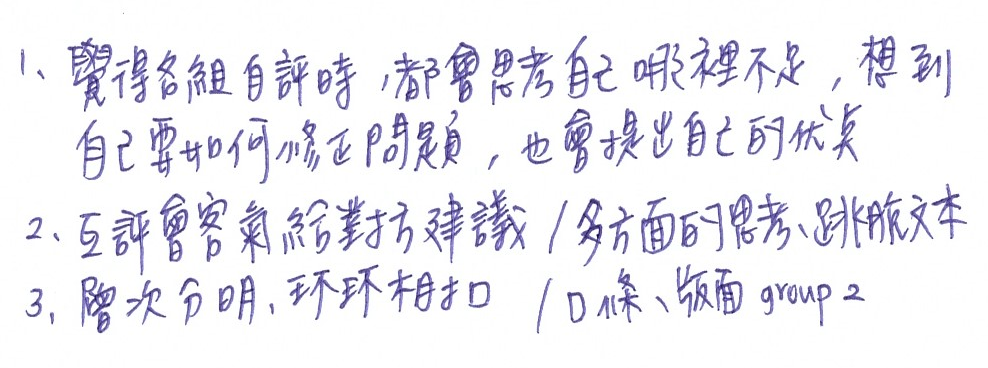 1、覺得各組自評時，都會思考自己哪裡不足，想到
自己要如何修正問題，也會提出自己的优点
2、互評會客氣給對方建議 / 多方面的思考、跳脫文本
3、層次分明、环环相扣 / 口條、版面 group 2